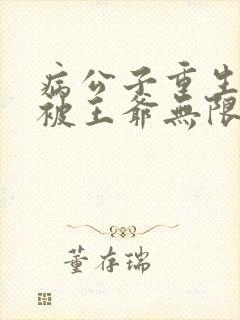 病公子重生
被王爺無限
董存瑞